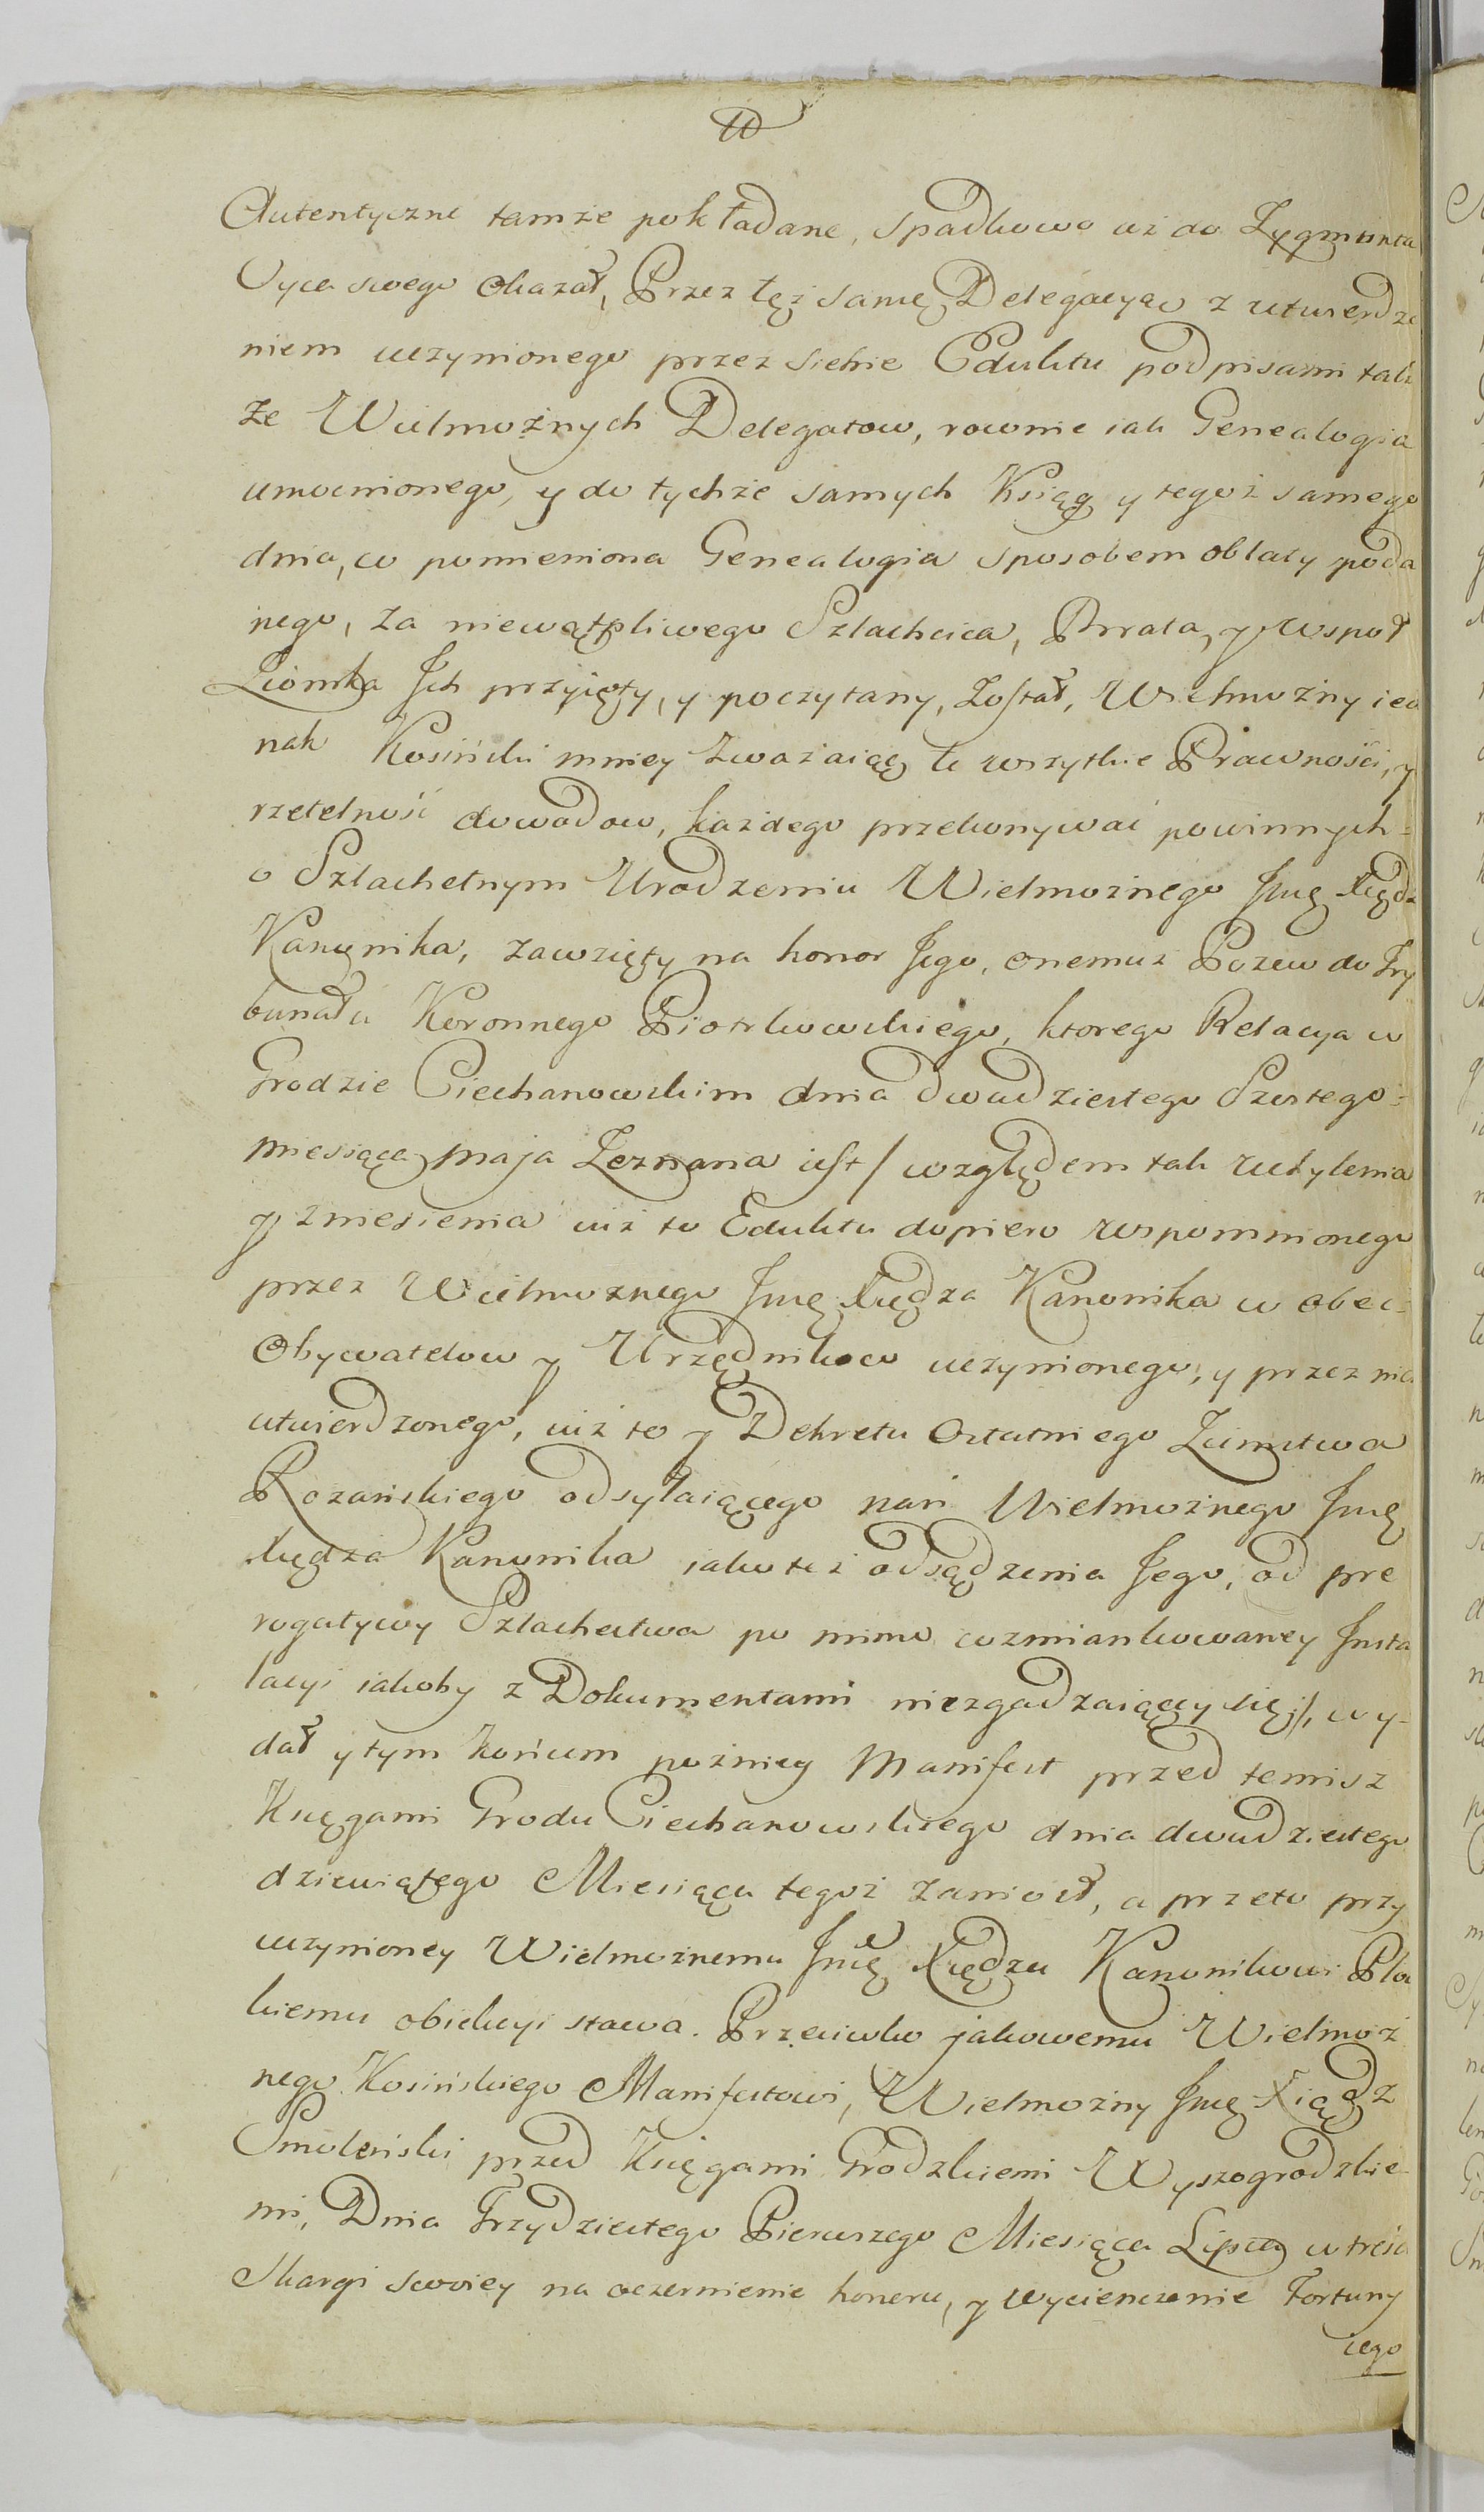 Autentyczne tamże pokładane, Spadkowo aż do Zygmunta
Oyca swego okazał, Przez tęż samę Delegacyą z utwierdze
niem uczynionego przez siebie Eduktu podpisami tak
że Wielmożnych Delegatow, rownie iak Genealogia
umocnionego, y do tychże samych Ksiąg y tegoż samego
dnia, co pomieniona Genealogia sposobem oblaty poda
nego, za niewątpliwego Szlachcica, Brata, y Wspoł
Ziomka Ich przyięty, y poczytany, Został, Wielmożny ied
nak Kosiński mniey zważaiąc te wszytkie Prawności, y
rzetelność dowodow, każdego przekonywać powinnych
o Szlachetnym Urodzeniu Wielmożnego Jmę Xiędza
Kanonika, zawzięty na honor Jego, onemuż Pozew do Try
bunału Koronnego Piotrkowskiego, ktorego Relacya w
Grodzie Ciechanowskim dnia dwudziestego Szostego
miesiąca maja Zeznana iest / względem tak uchylenia
y zniesienia iuż to Eduktu dopiero wspomnionego
przez Wielmoznego Jmę Xiędza Kanonika w obec
Obywatelow y Urzędnikow uczynionego, y przez nich
utwierdzonego, iuż to y Dekretu Ostatniego Ziemstwa
Rozańskiego odsyłaiącego nań Wielmożnego Jmę
Xiędza Kanonika iako też odsądzenia Jego, od pre
rogatywy Szlachectwa po mimo wzmiankowaney Insta
lacyi iakoby z Dokumentami niezgadzaiącey się /, wy-
dał y tym końcem pożniey Manifest przed temisz
Księgami Grodu Ciechanowskiego dnia dwudziestego
dziewiątego Miesiąca tegoż zaniosł, a przeto przy
uczynioney Wielmożnemu Jmę Xiędzu Kanonikowi Płoc
kiemu obiekcyi stawa. Przeciwko jakowemu Wielmoż
nego Kosińskiego Manifestowi, Wielmożny Jmę Xiądz
Smoleński przed Księgami Grodzkiemi Wyszogrodzkie
mi, Dnia Trzydziestego Pierwszego Miesiąca Lipca w treści
Skargi swoiey na oczernienie honoru, y wycienczenie Fortuny
iego